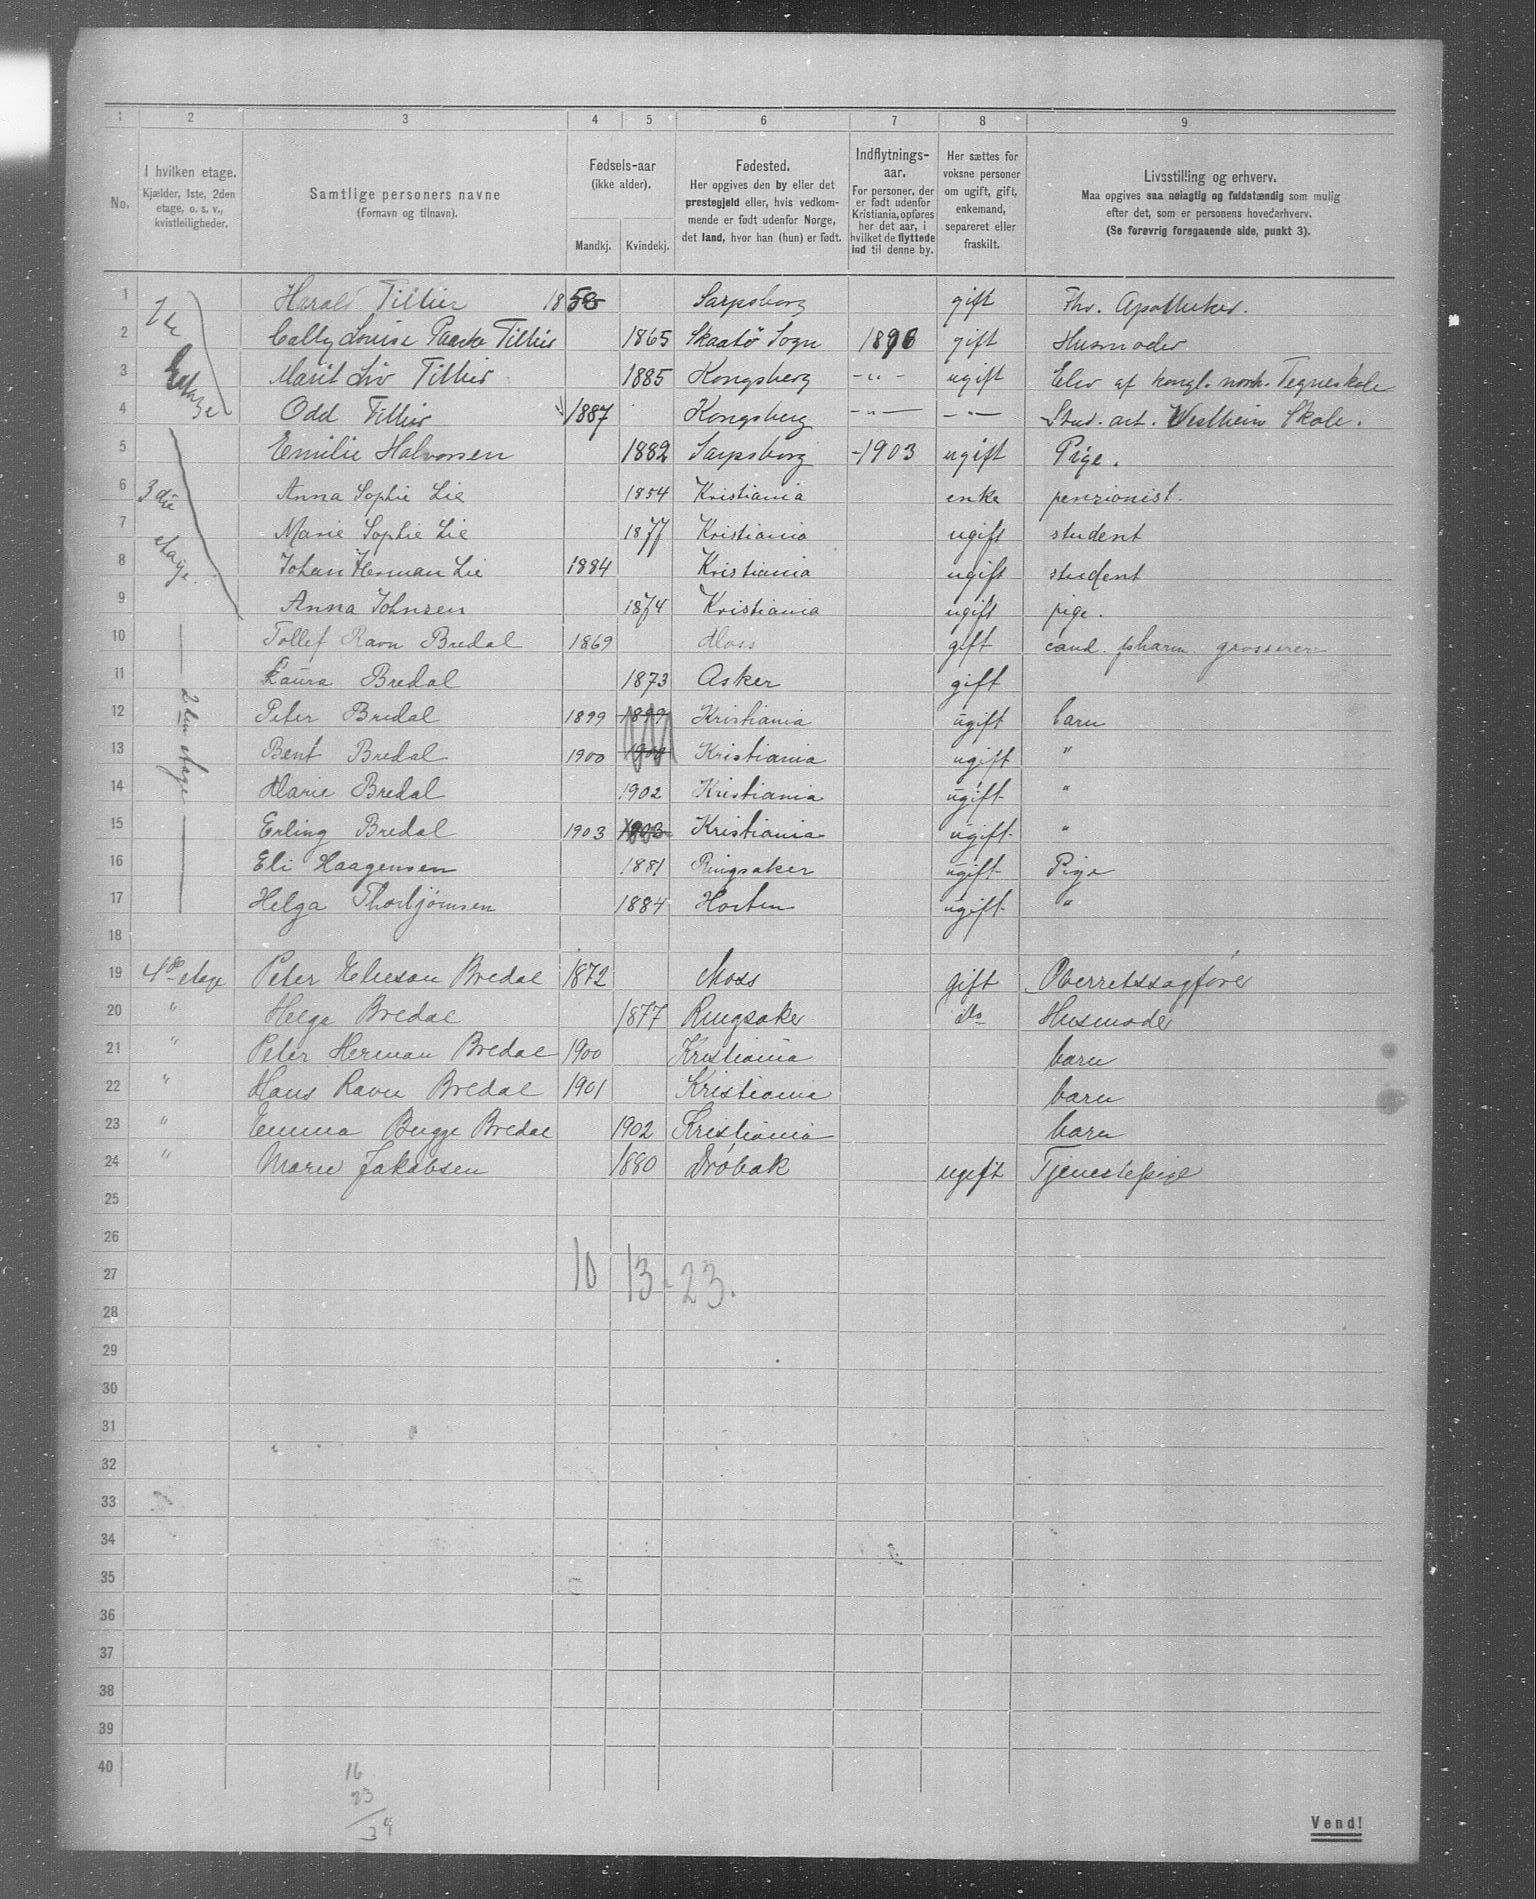 1 2 3 4 5 6 7 8 9
No.
I hvilken etage.
Kjælder, 1ste, 2den
etage, o. s. v.,
kvistleiligheder.
Samtlige personers navne
(Fornavn og tilnavn).
Fødsels-aar
(ikke alder).
Mandkj. Kvindekj.
Fødested.
Her opgives den by eller det
prestegjeld eller, hvis vedkom-
mende er født udenfor Norge,
det land, hvor han (hun) er født.
Indflytnings-
aar.
For personer, der
er født udenfor
Kristiania, opføres
her det aar, i
hvilket de flyttede
ind til denne by.
Her sættes for
voksne personer
om ugift, gift,
enkemand,
separeret eller
fraskilt.
Livsstilling og erhverv.
Maa opgives saa nøiagtig og fuldstændig som mulig
efter det, som er personens hovederhverv.
(Se forøvrig foregaaende side, punkt 3).
1 1ste Etage Harald Tillier 1858 Sarpsborg gift Fhv. Apotheker.
2 Cally Louise Tillier 1865 Skaatø Sogn 1896 gift Husmoder
3 Marit Liv Tillier 1885 Kongsberg -"- ugift Elev af kongl. norsk. Tegneskole
4 Odd Tillier 1887 Kongsberg -"- -"- Stud. art. Vestheim Skole.
5 Emilie Halvorsen 1882 Sarpsborg -1903 ugift Pige.
6 3die etage. Anna Sophie Lie 1854 Kristiania enke penzionist.
7 Marie Sophie Lie 1877 Kristiania ugift student
8 Johan Herman Lie 1884 Kristiania ugift student
9 Anna Johnsen 1874 Kristiania ugift pige.
10 Tollef Ravn Bredal 1869 Moss gift cand. pharm. grosserer
11 2den etage Laura Bredal 1873 Asker gift
12 Peter Bredal 1899 1899 Kristiania ugift barn
13 Bent Bredal 1900 1900 Kristiania ugift "
14 Marie Bredal 1902 Kristiania ugift "
15 Erling Bredal 1903 1903 Kristiania ugift "
16 Eli Haagensen 1881 Ringsaker ugift Pige
17 Helga Thorbjørnsen 1884 Horten ugift "
18
19 4de etage Peter Elieson Bredal 1872 Moss gift Overretssagfører
20 " Helga Bredal 1877 Ringsaker do Husmoder
21 " Peter Herman Bredal 1900 Kristiania barn
22 " Hans Ravn Bredal 1901 Kristiania barn
23 " Emma Bugge Bredal 1902 Kristiania barn
24 " Marie Jakobsen 1880 Drøbak ugift Tjenestepige
25
26
27 10 13 - 23.
28
29
30
31
32
33
34
35
36
37
38
39
40
16
23
39
Vend!